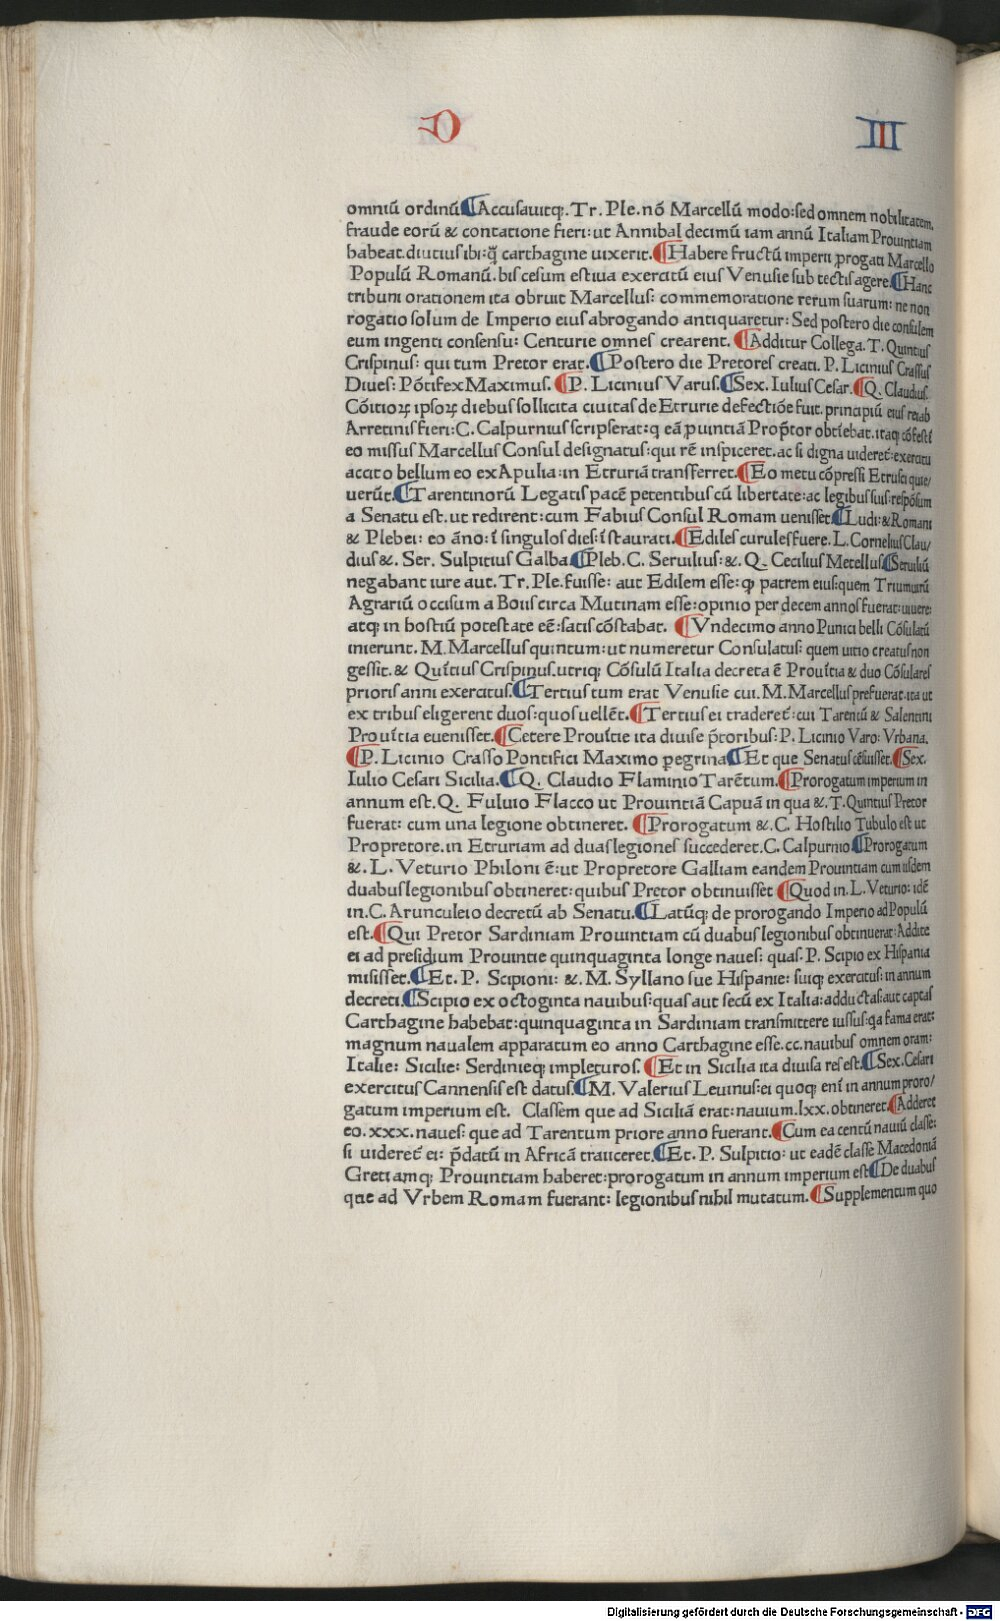 D III
omniū ordinū ¶Accusauitq;. Tr. Ple. nō Marcellū modo: sed omnem nobilitatem.
fraude eorū & contatione fieri: ut Annibal decimū iam annū Italiam Prouintiam
habeat. diutius ibi: q̄ carthagine uixerit. ¶Habere fructū imperii ꝓrogati Marcello
Populū Romanū. bis cesum estiua exercitū eius Venusie sub tectis agere. ¶Hanc
tribuni orationem ita obruit Marcellus: commemoratione rerum suarum: ne non
rogatio solum de Imperio eius abrogando antiquaretur: Sed postero die consulem
eum ingenti consensu: Centurie omnes crearent. ¶Additur Collega. T. Quintius
Crispinus: qui tum Pretor erat. ¶Postero die Pretores creati. P. Licinius Crassus
Diues: Pōtifex Maximus. ¶P. Licinius Varus. ¶Sex. Iulius Cesar. ¶Q. Claudius.
Cōitioꝝ ipsoꝝ diebus sollicita ciuitas de Etrurie defectiōe fuit. principiū eius rei ab
Arretinis fieri: C. Calpurnius scripserat: q eā ꝓuintiā Prop̄tor obtīebat. itaq; cōfestī
eo missus Marcellus Consul designatus: qui rē inspiceret. ac si digna uideret̄: exercitu
accito bellum eo ex Apulia: in Etruriā transferret. ¶Eo metu cōpressi Etrusci quie/
uerūt. ¶Tarentinorū Legatis pacē petentibus cū libertate: ac legibus suis: respōsum
a Senatu est. ut redirent: cum Fabius Consul Romam uenisset. ¶Ludi: & Romani
& Plebei: eo āno: ī singulos dies: īstaurati. ¶Ediles curules fuere. L. Cornelius Clau/
dius &. Ser. Sulpitius Galba ¶Pleb. C. Seruilius: &. Q. Cecilius Metellus ¶Seruiliū
negabant iure aut. Tr. Ple. fuisse: aut Edilem esse: ꝙ patrem eius: quem Triumuirū
Agrariū occisum a Boiis circa Mutinam esse: opinio per decem annos fuerat: uiuere:
atq; in hostiū potestate eē: satis cōstabat. ¶Vndecimo anno Punici belli Cōsulatū
inierunt. M. Marcellus quintum: ut numeretur Consulatus: quem uitio creatus non
gessit. & Quītius Crispinus. utriq; Cōsulū Italia decreta ē Prouītia & duo Cōsulares
prioris anni exercitus. ¶Tertius tum erat Venusie cui. M. Marcellus prefuerat. ita ut
ex tribus eligerent duos: quos uellēt. ¶Tertius ei traderet̄: cui Tarentū & Salentini
Prouītia euenisset. ¶Cetere Prouītie ita diuise p̄toribus: P. Licinio Varo: Vrbana.
¶P. Licinio Crasso Pontifici Maximo peregrina ¶Et que Senatus cēsuisset. ¶Sex.
Iulio Cesari Sicilia. ¶Q. Claudio Flaminio Tarētum. ¶Prorogatum imperium in
annum est. Q. Fuluio Flacco ut Prouintiā Capuā in qua &. T. Quintius Pretor
fuerat: cum una legione obtineret. ¶Prorogatum &. C. Hostilio Tubulo est ut
Propretore. in Etruriam ad duas legiones succederet. C. Calpurnio ¶Prorogatum
&. L. Veturio Philoni ē: ut Propretore Galliam eandem Prouintiam cum iisdem
duabus legionibus obtineret: quibus Pretor obtinuisset ¶Quod in. L. Veturio: idē
in. C. Arunculeio decretū ab Senatu. ¶Latūq; de prorogando Imperio ad Populū
est. ¶Qui Pretor Sardiniam Prouintiam cū duabus legionibus obtinuerat: Addite
ei ad presidium Prouintie quinquaginta longe naues: quas. P. Scipio ex Hispania
misisset. ¶Et. P. Scipioni: &. M. Syllano sue Hispanie: suiq; exercitus: in annum
decreti. ¶Scipio ex octoginta nauibus: quas aut secū ex Italia: adductas: aut captas
Carthagine habebat: quinquaginta in Sardiniam transmittere iussus: q̄a fama erat:
magnum naualem apparatum eo anno Carthagine esse. cc. nauibus omnem oram:
Italie: Sicilie: Serdinieq; impleturos. ¶Et in Sicilia ita diuisa res est. ¶Sex. Cesari
exercitus Cannensis est datus. ¶M. Valerius Leuinus: ei quoq; enī in annum proro/
gatum imperium est. Classem que ad Siciliā erat: nauium. lxx. obtineret. ¶Adderet
eo. xxx. naues: que ad Tarentum priore anno fuerant. ¶Cum ea centū nauiū classe:
si uideret̄ ei: p̄datū in Africā traiiceret. ¶Et. P. Sulpitio: ut eadē classe Macedoniā
Gretiamq; Prouintiam haberet: prorogatum in annum imperium est ¶De duabus
que ad Vrbem Romam fuerant: legionibus nihil mutatum. ¶Supplementum quo
Digitalisierung gefördert durch die Deutsche Forschungsgemeinschaft - DFG